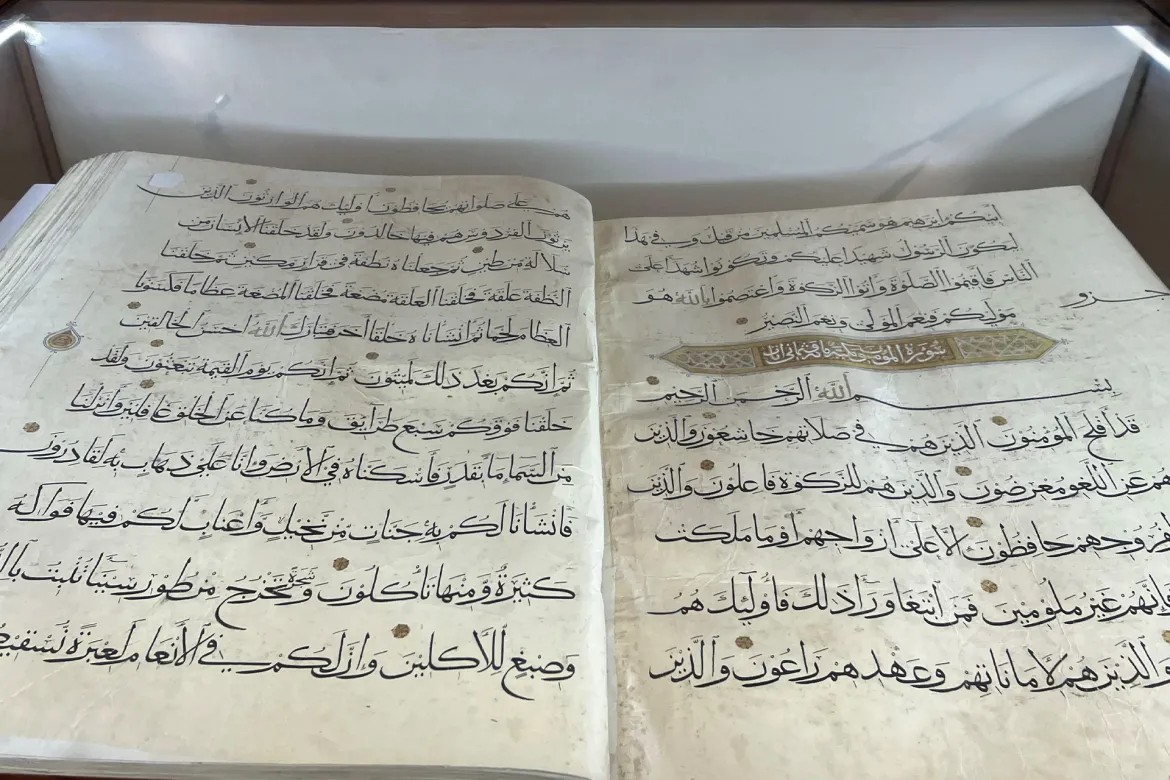 أبيكم إبرهيم هو سميكم المسلمين من قبل وفي هذا
ليكون الرسول شهيدا عليكم وتكونوا شهدا على
الناس فاقيموا الصلوة واتوا الزكوة واعتصموا بالله هو
موليكم فنعم المولى ونعم النصير
سورة
بسم الله الرحمن الرحيم
قد افلح المؤمنون الذين هم في صلاتهم خاشعون والذين
هم عن اللغو معرضون والذين هم للزكوة فاعلون والذين
هم لفروجهم حافظون الا على ازواجهم أو ما ملكت
فإنهم غير ملومين فمن ابتغا ورآ ذلك فأوليك هم
والذين هم لاماناتهم وعهدهم راعون والذين
هم على صلواتهم يحافظون اوليك هم الوارثون الذين
يرثون الفردوس هم فيها خالدون ولقد خلقنا الانسان من
سلالة من طين ثم جعلناه نطفة في قرار مكين ثم خلقنا
النطفة علقة فخلقنا العلقة مضغة فخلقنا المضغة عظاما فكسونا
العظام لحما ثم انشاناه خلقا اخر فتبارك الله احسن الخالقين
ثم إنكم بعد ذلك لميتون ثم إنكم يوم القيمة تبعثون ولقد
خلقنا فوقكم سبع طرآيق وما كنا عن الخلق غافلين وانزلنا
من السمآ مآ بقدر فاسكناه في الأرض وانا على ذهاب به لقادرون
فانشأنا لكم به جنات من نخيل وأعناب لكم فيها فواكه
كثيرة ومنها تاكلون وشجرة تخرج من طور سينآ تنبت
وصبغ للآكلين وإن لكم في الأنعام لعبرة نسقيكم